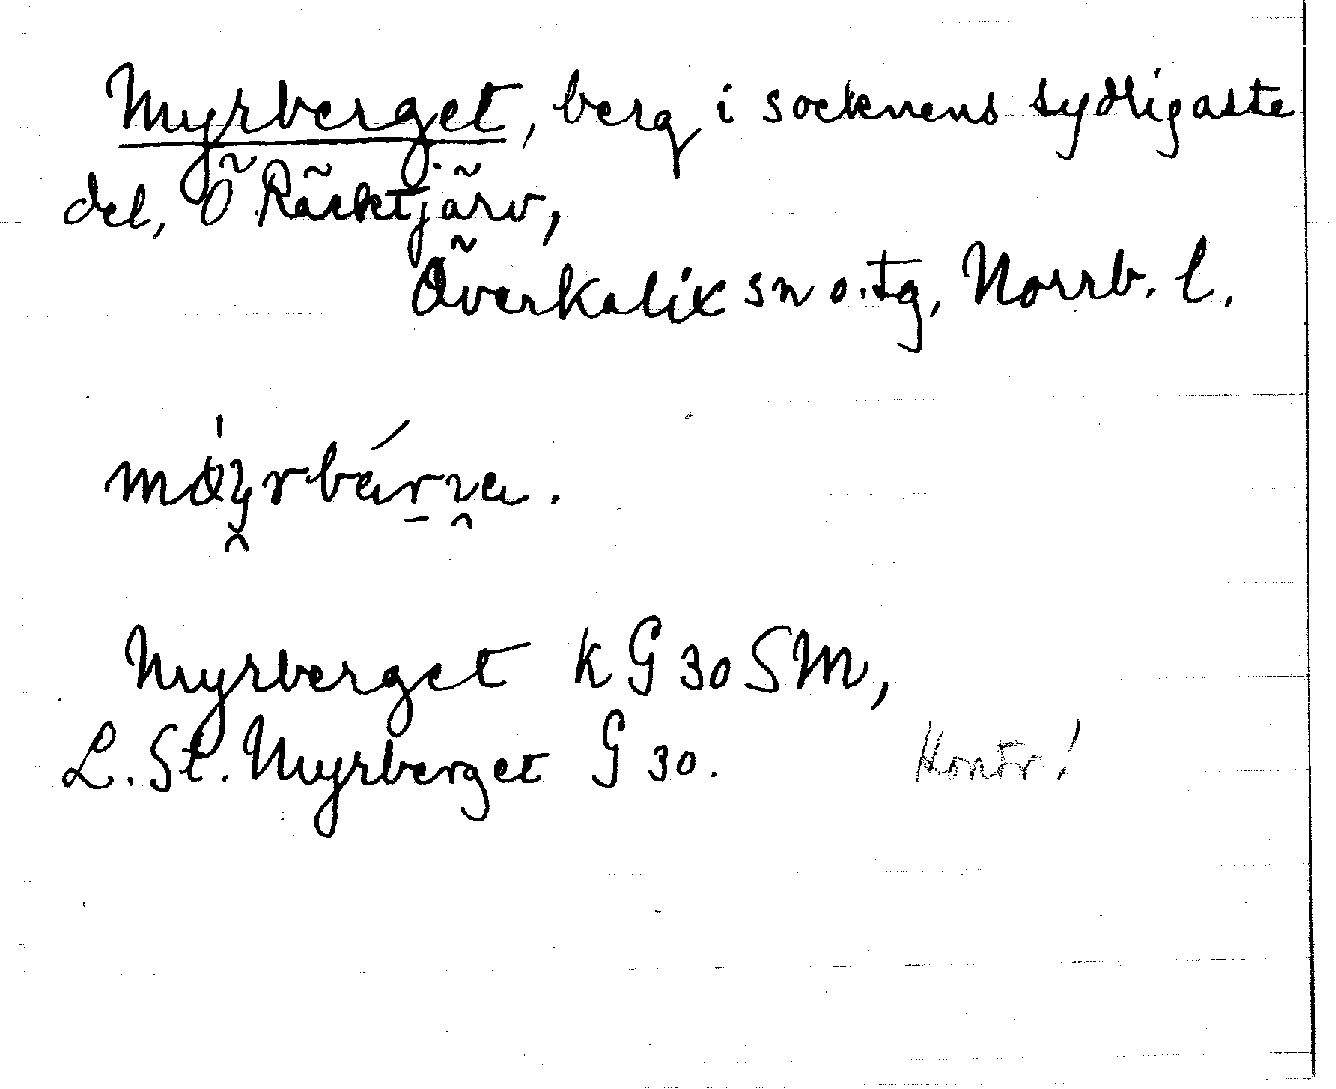 Myrberget, berg i socknens sydligaste
del, Ö Räcktjärv,
Överkalix sn o. tg, Norrb. l.
Myrberget k G 30 SM,
L. St. Myrberget G 30. Kontr!